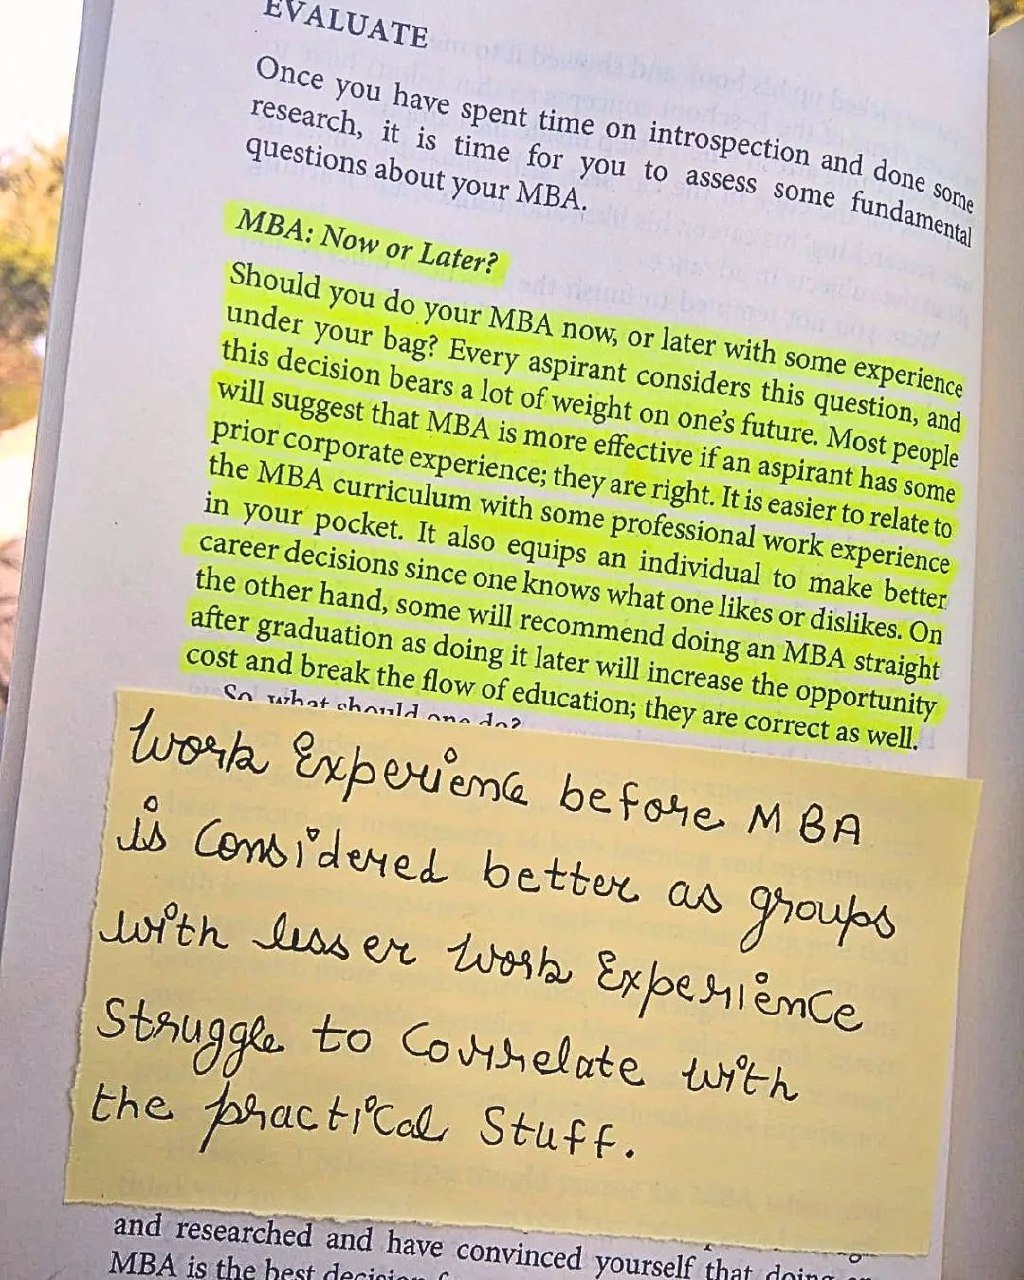 EVALUATE
Once you have spent time on introspection and done some
research, it is time for you to assess some fundamental
questions about your MBA.
MBA: Now or Later?
Should you do your MBA now, or later with some experience
under your bag? Every aspirant considers this question, and
this decision bears a lot of weight on one's future. Most people
will suggest that MBA is more effective if an aspirant has some
prior corporate experience; they are right. It is easier to relate to
the MBA curriculum with some professional work experience
in your pocket. It also equips an individual to make better
career decisions since one knows what one likes or dislikes. On
the other hand, some will recommend doing an MBA straight
after graduation as doing it later will increase the opportunity
cost and break the flow of education; they are correct as well.
So what should one do?
Work Experience before MBA
is Considered better as groups
with lesser Work Experience
Struggle to Correlate with
the practical Stuff.
and researched and have convinced yourself that doing
MBA is the best